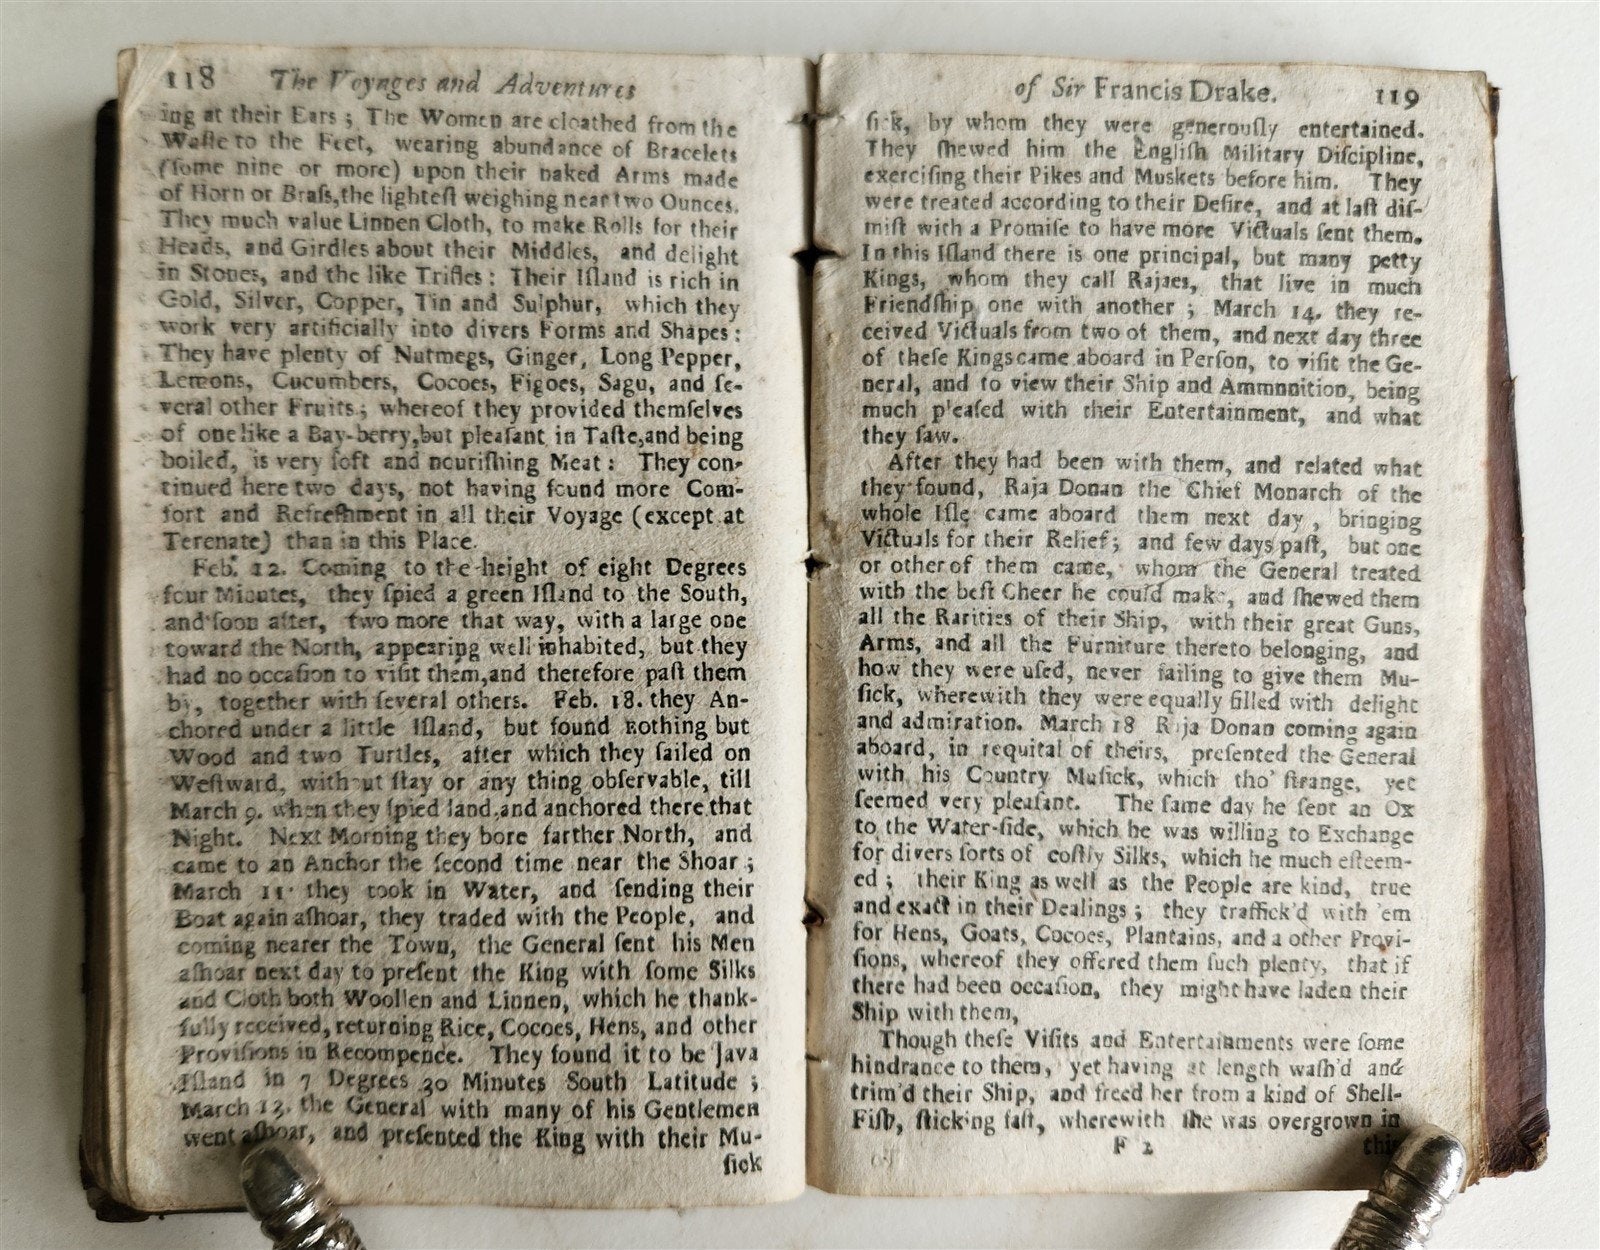 118 The Voyages and Adventures
ing at their Ears ; The Women are cloathed from the
Waſte to the Feet, wearing abundance of Bracelets
(ſome nine or more) upon their naked Arms made
of Horn or Braſs, the lighteſt weighing near two Ounces.
They much value Linnen Cloth, to make Rolls for their
Heads, and Girdles about their Middles, and delight
in Stones, and the like Trifles : Their Iſland is rich in
Gold, Silver, Copper, Tin and Sulphur, which they
work very artificially into divers Forms and Shapes :
They have plenty of Nutmegs, Ginger, Long Pepper,
Lemons, Cucumbers, Cocoes, Figoes, Sagu, and ſe-
veral other Fruits ; whereof they provided themſelves
of one like a Bay-berry, but pleaſant in Taſte, and being
boiled, is very ſoft and nouriſhing Meat : They con-
tinued here two days, not having found more Com-
fort and Refreſhment in all their Voyage (except at
Terenate) than in this Place.
Feb. 12. Coming to the height of eight Degrees
four Minutes, they ſpied a green Iſland to the South,
and ſoon after, two more that way, with a large one
toward the North, appearing well inhabited, but they
had no occaſion to viſit them, and therefore paſt them
by, together with ſeveral others. Feb. 18. they An-
chored under a little Iſland, but found nothing but
Wood and two Turtles, after which they ſailed on
Weſtward, without ſtay or any thing obſervable, till
March 9. when they ſpied land, and anchored there that
Night. Next Morning they bore farther North, and
came to an Anchor the ſecond time near the Shoar ;
March 11. they took in Water, and ſending their
Boat again aſhoar, they traded with the People, and
coming nearer the Town, the General ſent his Men
aſhoar next day to preſent the King with ſome Silks
and Cloth both Woollen and Linnen, which he thank-
fully received, returning Rice, Cocoes, Hens, and other
Proviſions in Recompence. They found it to be Java
Iſland in 7 Degrees 30 Minutes South Latitude ;
March 13. the General with many of his Gentlemen
went aſhoar, and preſented the King with their Mu-
ſick
of Sir Francis Drake. 119
ſick, by whom they were generouſly entertained.
They ſhewed him the Engliſh Military Diſcipline,
exerciſing their Pikes and Muskets before him. They
were treated according to their Deſire, and at laſt diſ-
miſt with a Promiſe to have more Victuals ſent them.
In this Iſland there is one principal, but many petty
Kings, whom they call Rajaes, that live in much
Friendſhip one with another ; March 14. they re-
ceived Victuals from two of them, and next day three
of theſe Kings came aboard in Perſon, to viſit the Ge-
neral, and to view their Ship and Ammunition, being
much pleaſed with their Entertainment, and what
they ſaw.
After they had been with them, and related what
they found, Raja Donan the Chief Monarch of the
whole Iſle came aboard them next day , bringing
Victuals for their Relief ; and few days paſt, but one
or other of them came, whom the General treated
with the beſt Cheer he could make, and ſhewed them
all the Rarities of their Ship, with their great Guns,
Arms, and all the Furniture thereto belonging, and
how they were uſed, never failing to give them Mu-
ſick, wherewith they were equally filled with delight
and admiration. March 18 Raja Donan coming again
aboard, in requital of theirs, preſented the General
with his Country Muſick, which tho' ſtrange, yet
ſeemed very pleaſant. The ſame day he ſent an Ox
to the Water-ſide, which he was willing to Exchange
for divers ſorts of coſtly Silks, which he much eſteem-
ed ; their King as well as the People are kind, true
and exact in their Dealings ; they traffick'd with 'em
for Hens, Goats, Cocoes, Plantains, and a other Provi-
ſions, whereof they offered them ſuch plenty, that if
there had been occaſion, they might have laden their
Ship with them,
Though theſe Viſits and Entertainments were ſome
hindrance to them, yet having at length waſh'd and
trim'd their Ship, and freed her from a kind of Shell-
Fiſh, ſticking faſt, wherewith ſhe was overgrown in
F 2 this